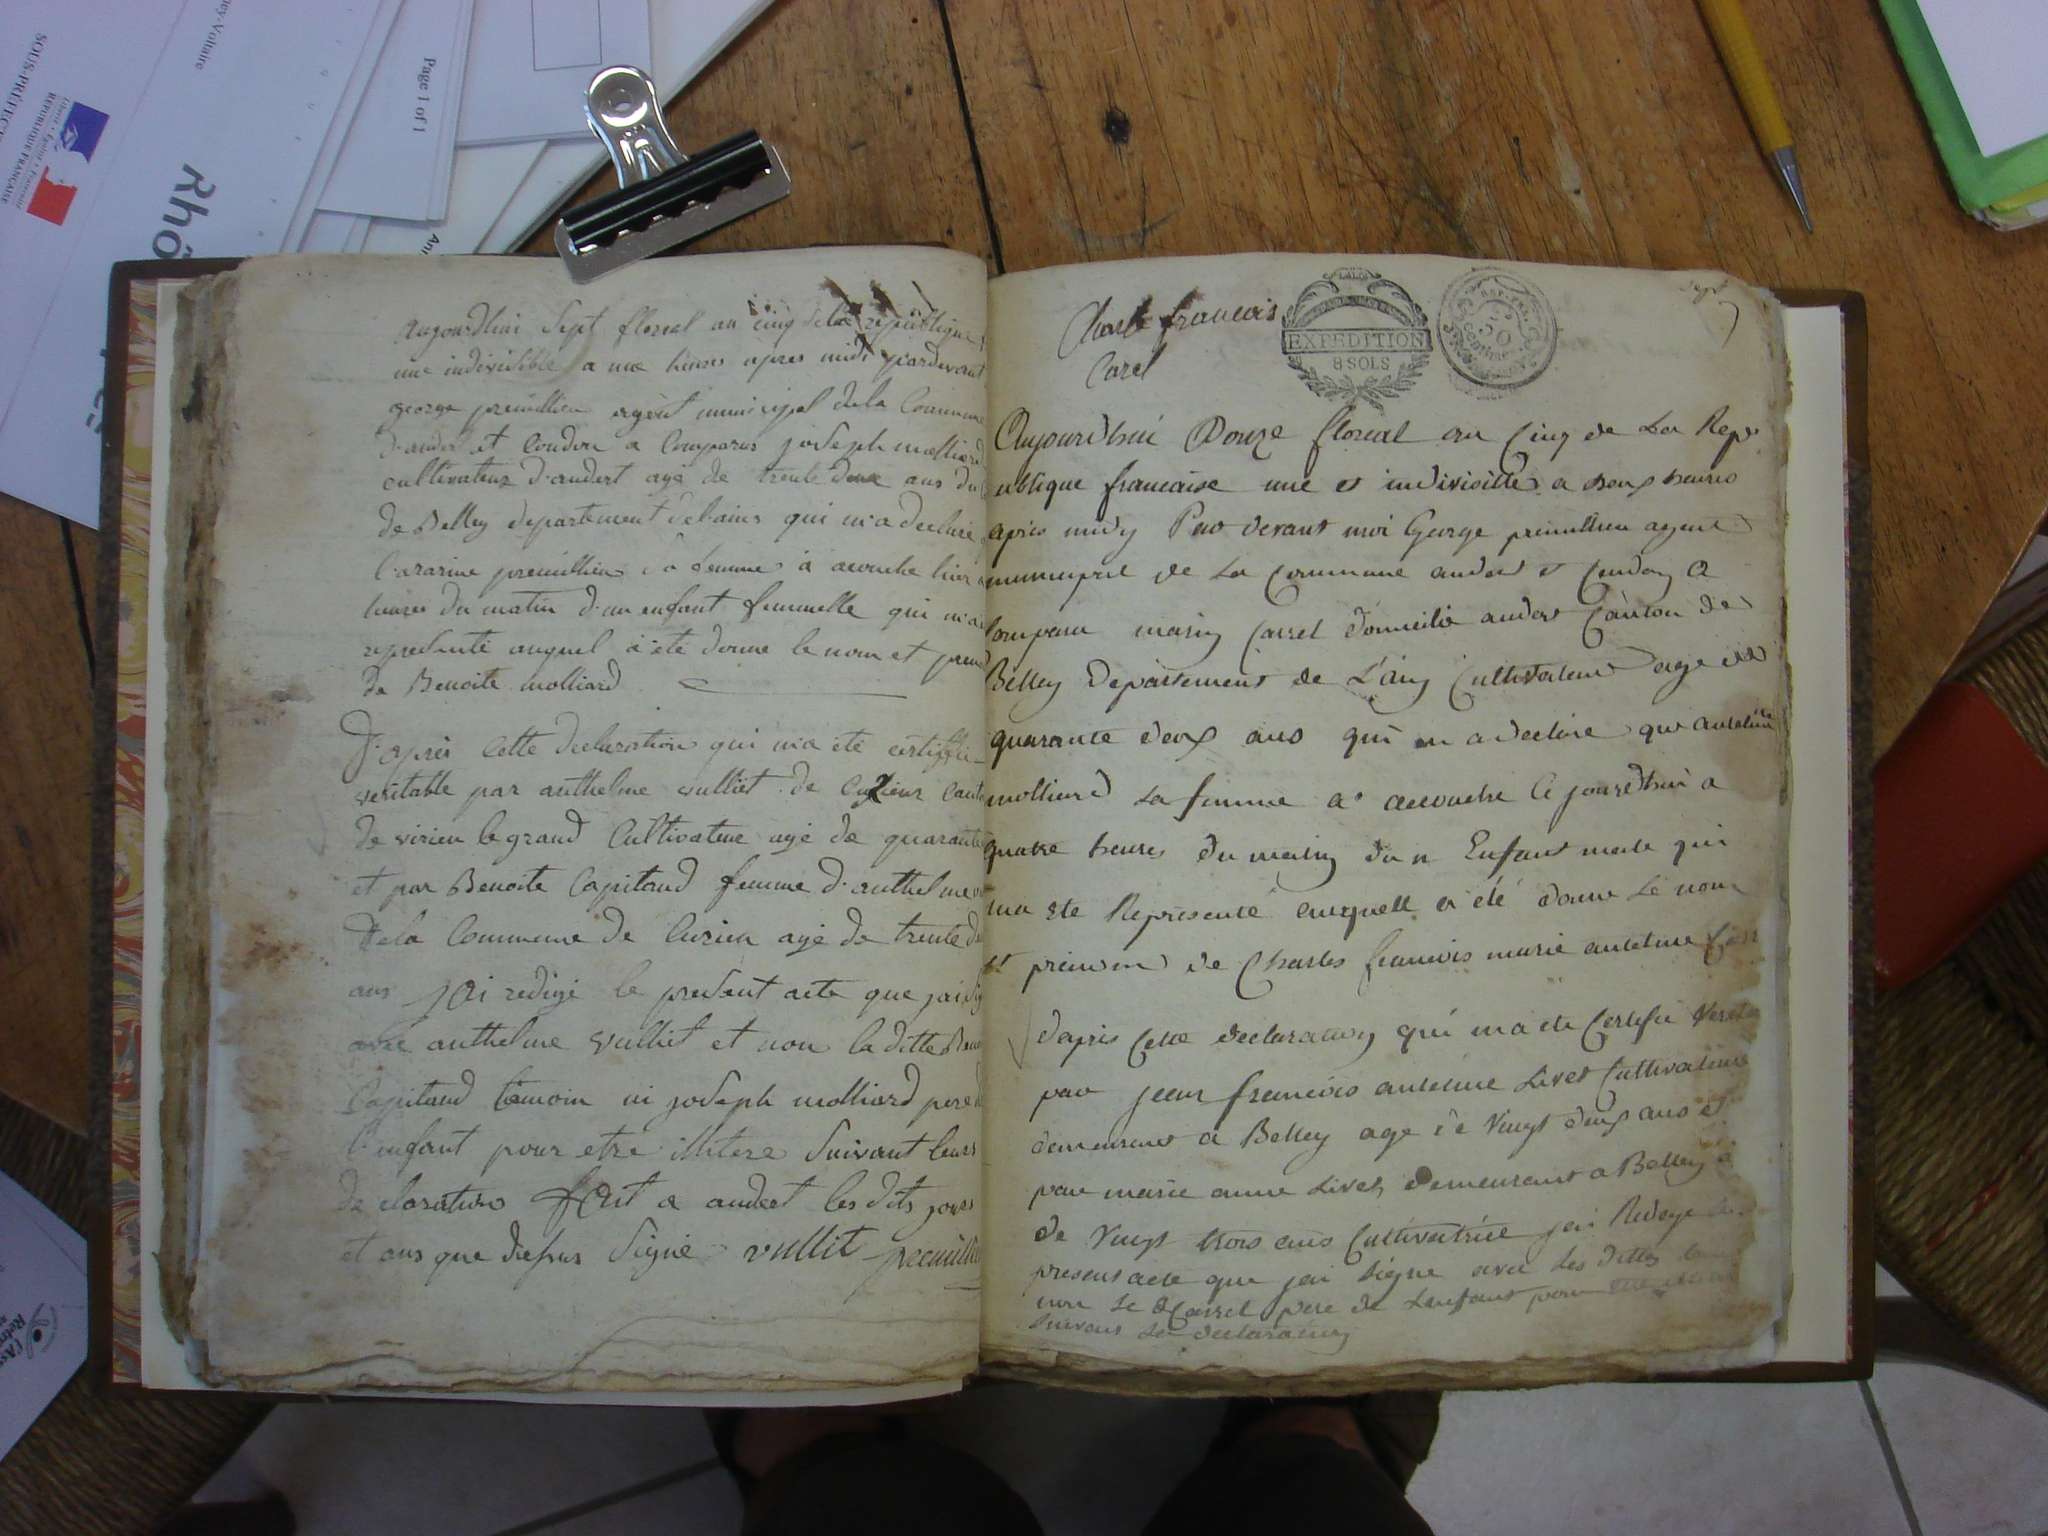 ney-Voltaire
SOUS-PRÉFECT
Liberté • Égalité • Fraternité
RÉPUBLIQUE FRANÇAISE
Rhô
Page 1 of 1
An
aujourdhui Sept floreal an cinq de la republique
une indivisible a une heures apres midi pardevant
george premillieu agent municipal de la Commune
d'andert et Condon a Comparus joseph molliard
cultivateur d'andert agé de trente deux ans du
de Belley departement de l'ains qui m'a declaré
premillieu sa femme à acouché hier
heures du matin d'un enfant femmelle qui m'a
representé auquel à été donné le nom et preno
de Benoite molliard
D'après cette declaration qui m'a été certiffié
veritable par anthelme vulliet de Cuzieux Canto
de virieu le grand Cultivateur agé de quarante
et par Benoite Capitand femme d'anthelme
de la Commune de Cuzieu agé de trente de
ans jai redigé le present acte que jai sig
avec anthelme vulliet et non la ditte Beno
Capitand témoin ni joseph molliard pere de
l'enfant pour etre illitere Suivant leurs
declarations fait a andert les dits jours
et ans que dessus Signé vullit premillieu
Charle francois
Carel
EXPEDITION
8 SOLS
REP. FRA.
Sept
7
Aujourdhui Douze floreal an Cinq de La Repu
ublique francaise une et indivisible a deux heures
apres midy Par devant moi George premillieu agent
municipal de La Commune andert et Condon a
Comparu marin Carrel domicilié andert Canton de
Belley Departement de L'ain Cultivateur age de
quarante deux ans qui m a declaré que antelmette
molliard sa femme a accouché Ce jourdhui a
quatre heures du matin d'un Enfant male qui
ma ete Representé auxquell a été donné Le nom
et prenom de Charles francois marie antelme Carr
dapres Cette declaration qui ma ete Certifié Verita
par jean francois antelme Livet Cultivateur
demeurant a Belley age de Vingt deux ans et
par marie anne Livet demeurant a Belley a
de Vingt trois ans Cultivatrice jai Redige le
present acte que jai Signe avec Les dittes
non Le Carrel pere de Lenfant pour
suivant Sa declaration